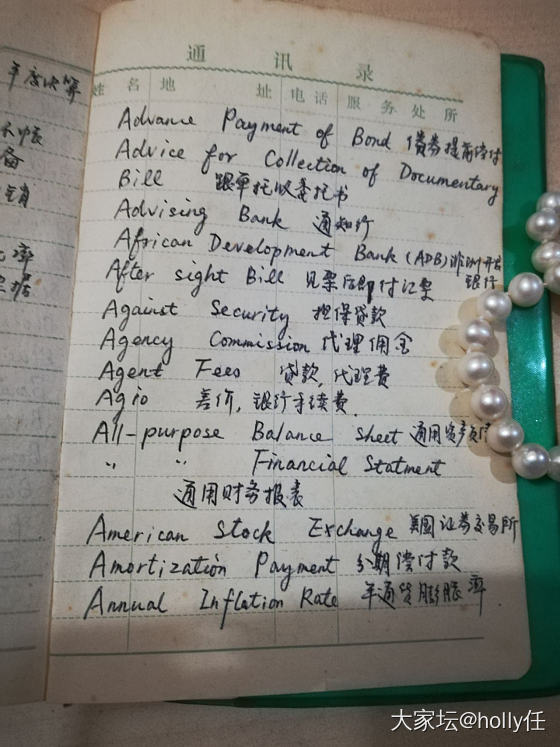 年度决算
备
销
率
据
通讯录
姓名 地址 电话 服务处所
Advance Payment of Bond 债券提前偿付
Advice for Collection of Documentary
Bill 跟单托收委托书
Advising Bank 通知行
African Development Bank (ADB) 非洲开发
银行
After sight Bill 见票后即付汇票
Against Security 担保贷款
Agency Commission 代理佣金
Agent Fees 贷款,代理费
Agio 差价,银行手续费.
All-purpose Balance sheet 通用资产负债
" " Financial Statment
通用财务报表
American Stock Exchange 美國证券交易所
Amortization Payment 分期偿付款
Annual Inflation Rate 年通货膨胀率
大家坛@holly任